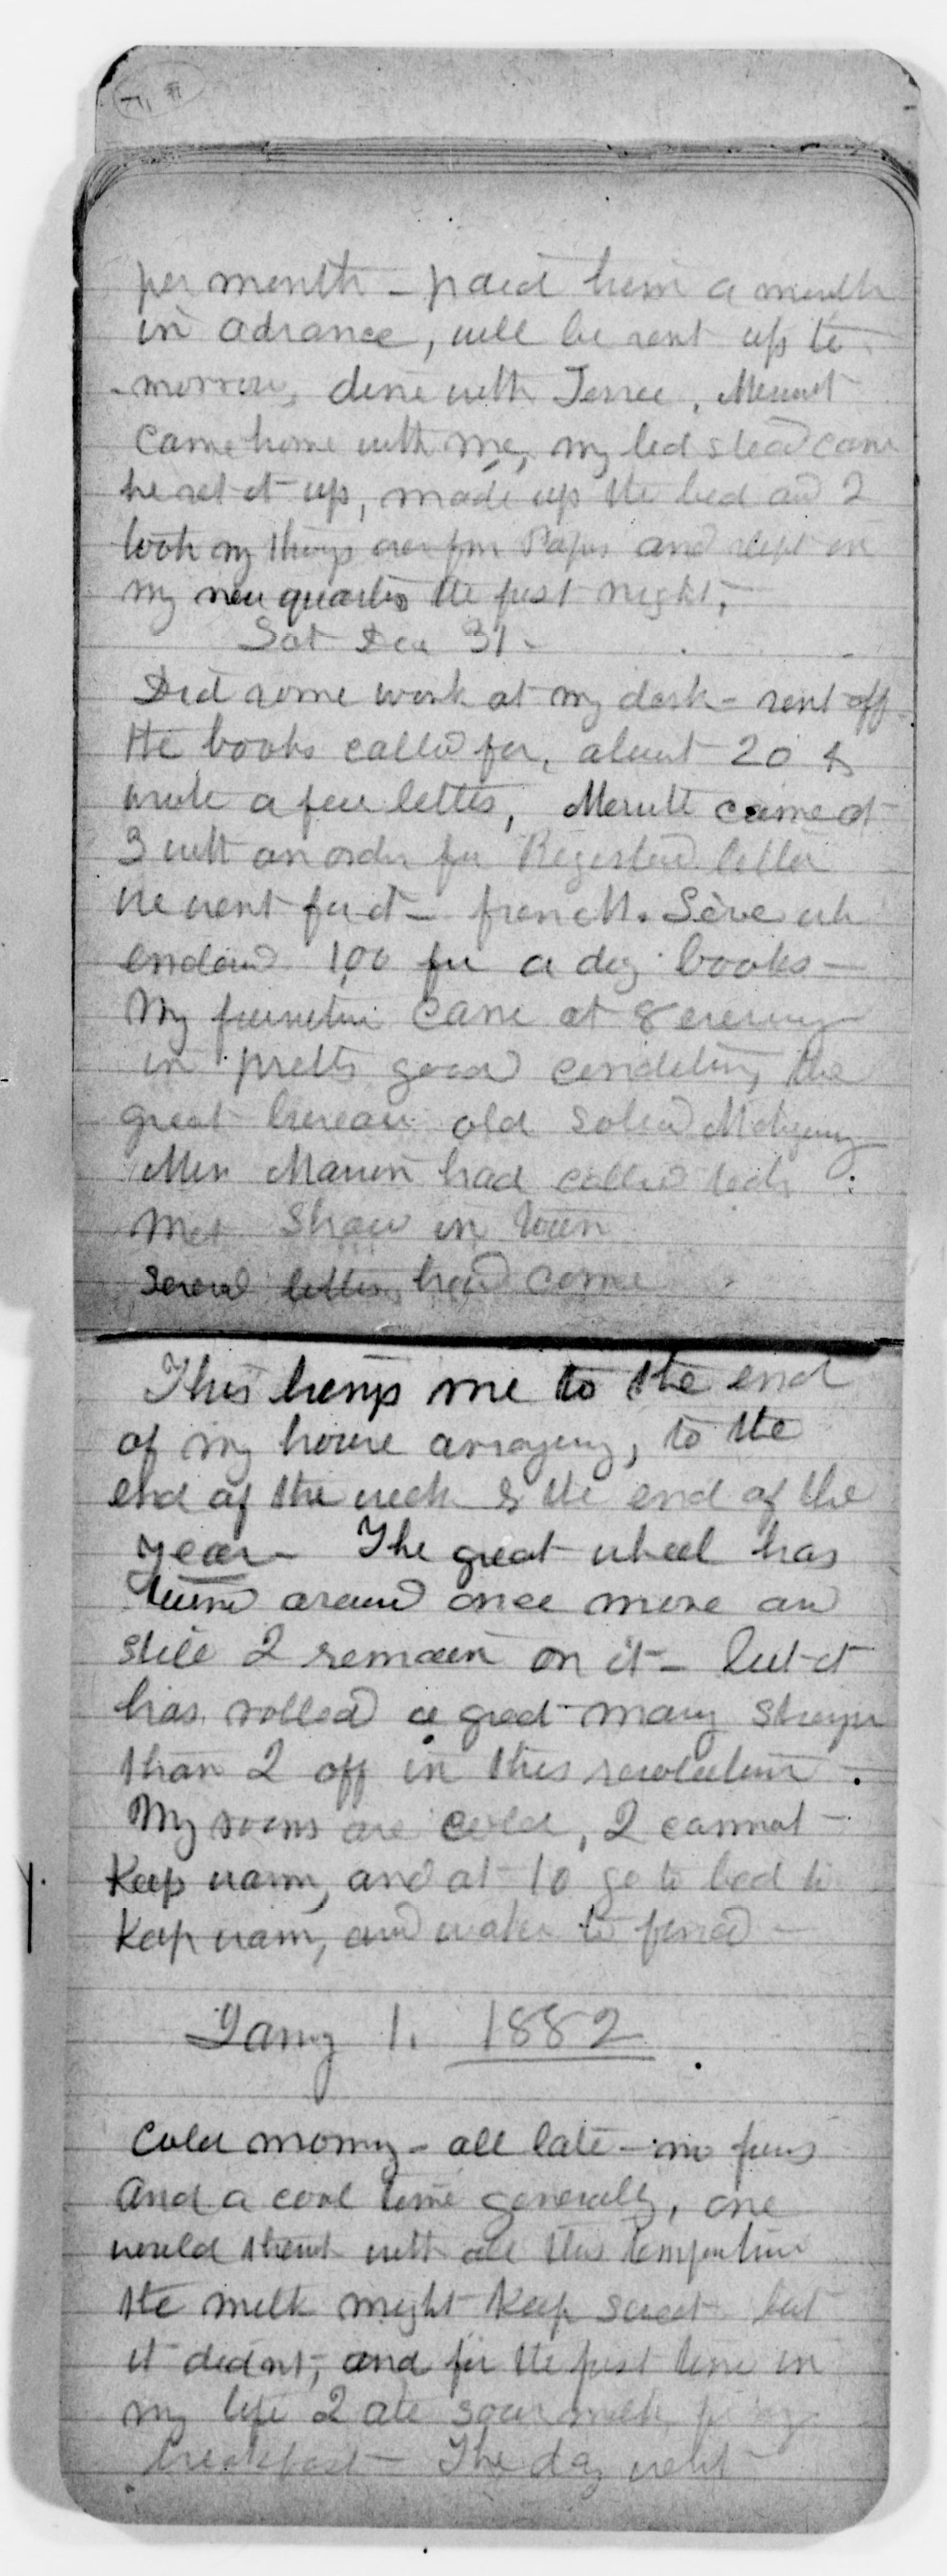 per month - paid him a month
in advance, will be sent up to
-morrow, dine with . Merritt
came home with me, my bedstead came
he set it up, made up the bed and I
took my things over from Papas and slept in
my new quarters the first night,
Sat Dec 31 -
Did some work at my desk - sent off
the books called for, about 20 &
wrote a few letters, Merritt came at
3 with an order for Registered letter
we went for it - from M. Sève wh
enclosed 100 for a doz books -
My furniture came at 8 evening
in pretty good condition, the
great bureau old solid Mahogany
Mrs Marion had called today
Met Shaw in town
Several letters had come
This brings me to the end
of my house arranging, to the
end of the week & the end of the
year - The great wheel has
turned around once more and
still I remain on it - but it
has rolled a great many stronger
than I off in this revolution.
My rooms are cold, I cannot
keep warm, and at 10 go to bed to
keep warm, and water to
Jany 1. 1882
Cold morning - all late - no fires
and a cool time generally, one
would think with all this temperature
the milk might keep sweet but
it didnt, and for the first time in
my life I ate sour milk for my
breakfast - The day went